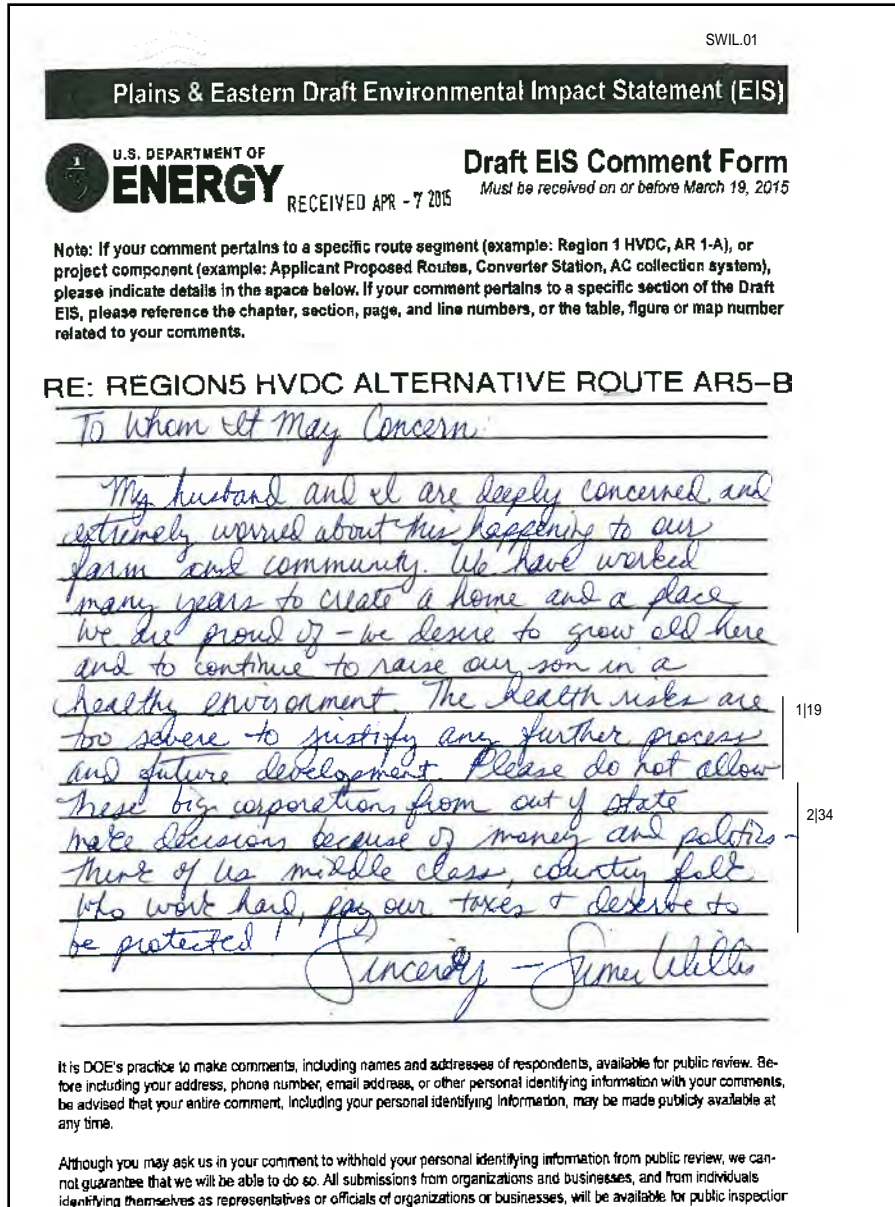 SWIL.01
Plains & Eastern Draft Environmental Impact Statement (EIS)
U.S. DEPARTMENT OF
ENERGY
RECEIVED APR - 7 2015
Draft EIS Comment Form
Must be received on or before March 19, 2015
Note: If your comment pertains to a specific route segment (example: Region 1 HVDC, AR 1-A), or
project component (example: Applicant Proposed Routes, Converter Station, AC collection system),
please indicate details in the space below. If your comment pertains to a specific section of the Draft
EIS, please reference the chapter, section, page, and line numbers, or the table, figure or map number
related to your comments.
RE: REGION5 HVDC ALTERNATIVE ROUTE AR5-B
To Whom It May Concern:
My husband and I are deeply concerned and
extremely worried about this happening to our
farm and community. We have worked
many years to create a home and a place
we are proud of - we desire to grow old here
and to continue to raise our son in a
healthy environment. The health risks are
1|19
too severe to justify any further process
and future development. Please do not allow
these big corporations from out of state
2|34
make decisions because of money and politics -
think of us middle class, country folk
who work hard, pay our taxes & deserve to
be protected!
Sincerely - Sumer Willis
It is DOE's practice to make comments, including names and addresses of respondents, available for public review. Be-
fore including your address, phone number, email address, or other personal identifying information with your comments,
be advised that your entire comment, including your personal identifying information, may be made publicly available at
any time.
Although you may ask us in your comment to withhold your personal identifying information from public review, we can-
not guarantee that we will be able to do so. All submissions from organizations and businesses, and from individuals
identifying themselves as representatives or officials of organizations or businesses, will be available for public inspection